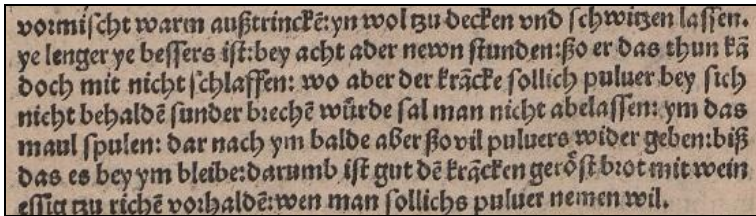 vormischt warm außtrinckē:yn wol tzu decken vnd schwitzen lassen.
ye lenger ye bessers ist:bey acht ader newn stunden:ßo er das thun kā
doch mit nicht schlaffen: wo aber der krācke sollich puluer bey sich
nicht behaldē sunder brechē wůrde sal man nicht abelassen: ym das
maul spulen: dar nach ym balde aber ßo vil puluers wider geben:biß
das es bey ym bleibe:darumb ist gut dē krācken gerőst brot mit wein
essig tzu richē vorhaldē:wen man sollichs puluer nemen wil.